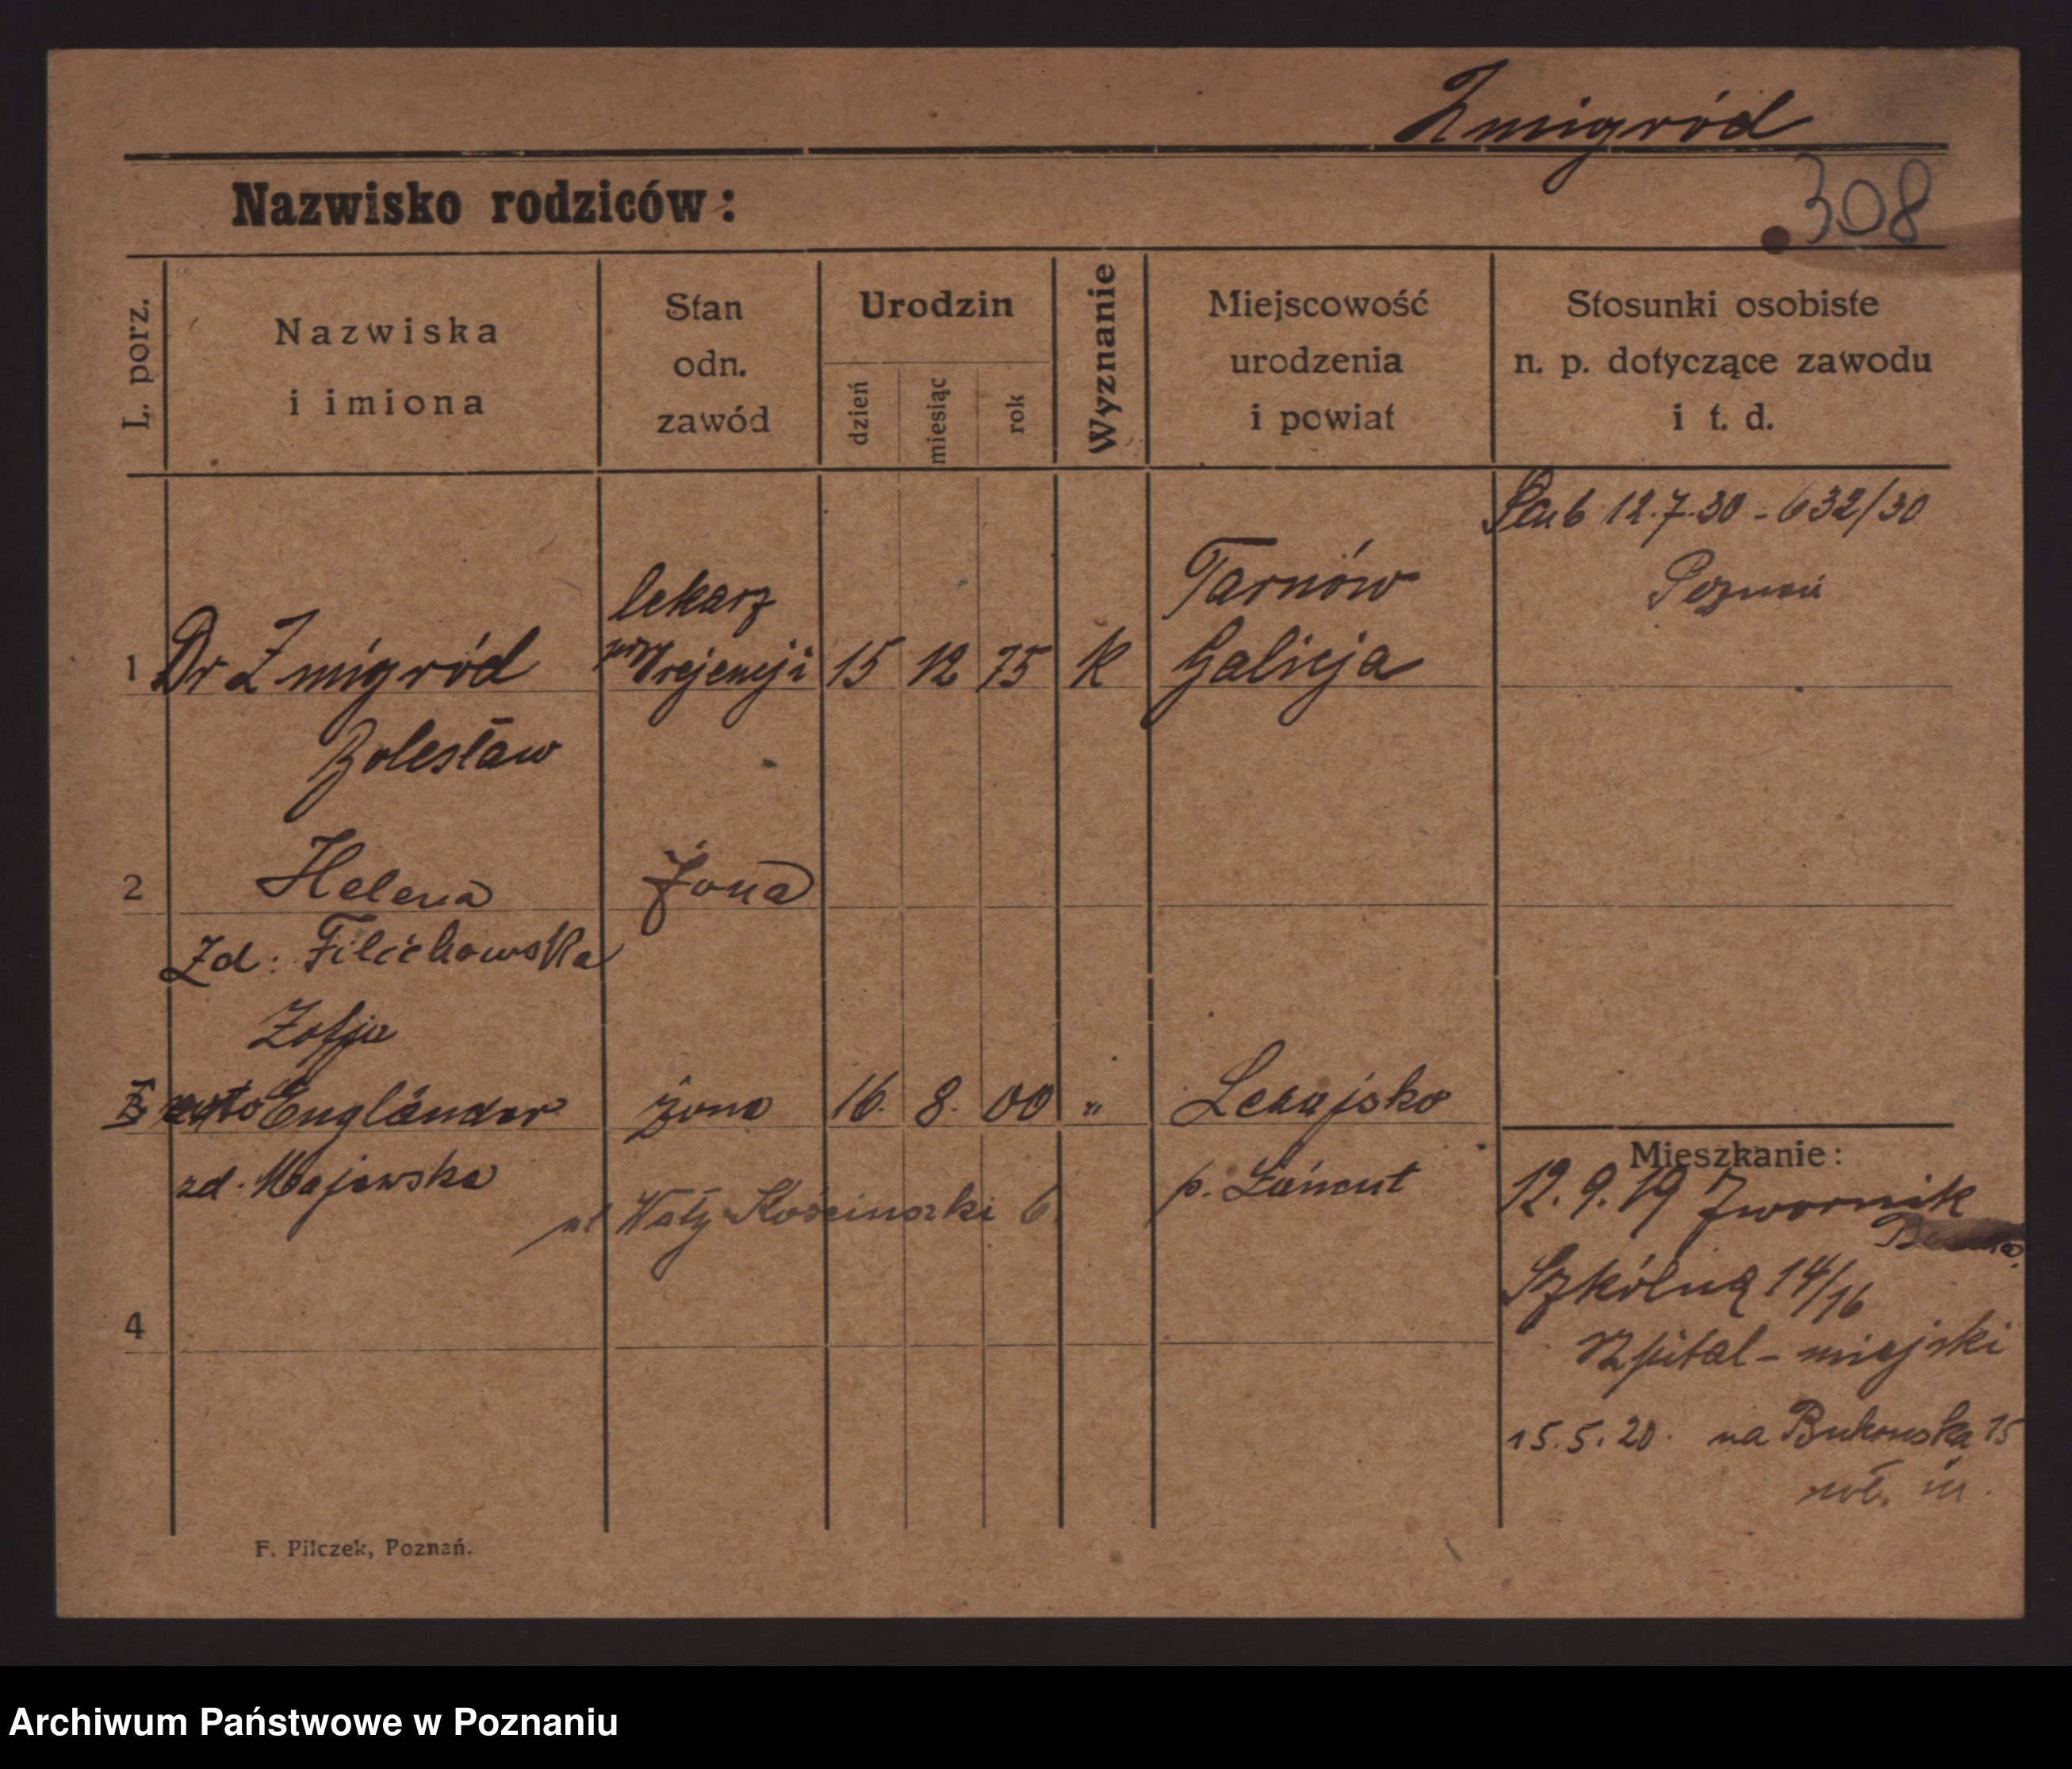 Zmigród
308
Nazwisko rodziców:
L. porz.
Nazwiska
i imiona
Stan
odn.
zawód
Urodzin
dzień
miesiąc
rok
Wyznanie
Miejscowość
urodzenia
i powiat
Stosunki osobiste
n. p. dotyczące zawodu
i t. d.
Ślub 12.7.30 - 632/30
Poznań
1 Dr Zmigród lekarz przy rejencji 15 12 75 K Tarnów Galicja
Bolesław
2 Helena żona
Zd: Filichowska
Zofja
Engländer żona 16. 8. 00 " Leżajsko
zd. Majewska p. Łańcut
ul Wały Kościuszki 6
Mieszkanie:
12.9.19 Zwornik
Szkólną 14/16
szpital - miejski
15.5.20. na Bukowska 15
4
F. Pilczek, Poznań.
Archiwum Państwowe w Poznaniu